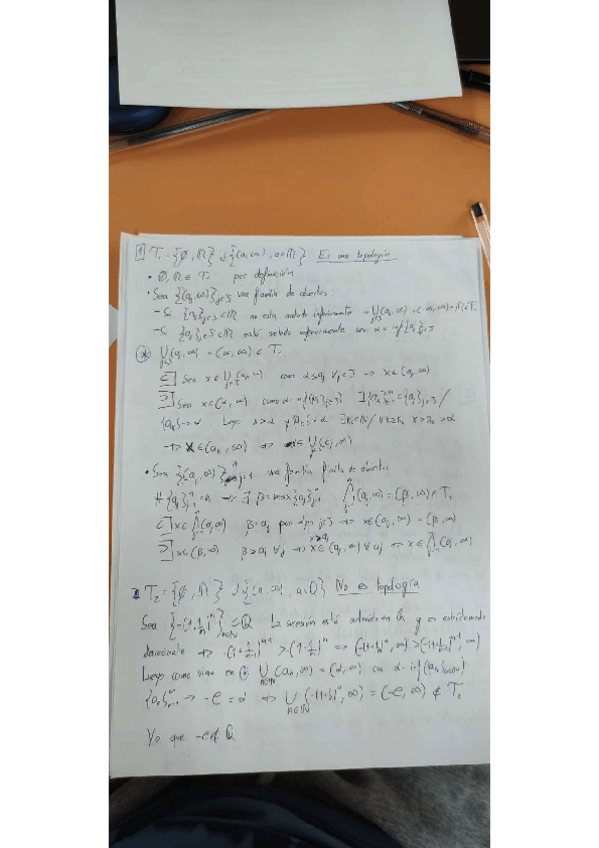 1 T₁ = {∅, ℝ} ∪ {(a, ∞), a∈ℝ} Es una topología
• ∅, ℝ ∈ T₁ por definición
• Sea {(aⱼ, ∞)}ⱼ∈J una familia de abiertos:
- Si {aⱼ}ⱼ∈J ⊂ ℝ no está acotado inferiormente
- Si {aⱼ}ⱼ∈J ⊂ ℝ está acotado inferiormente sea α = inf{aⱼ}ⱼ∈J
* ∪ (aⱼ, ∞) = (α, ∞) ∈ T₁
⊂] Sea x ∈ ∪ (aⱼ, ∞) como α ≤ aⱼ ∀j∈J => x ∈ (α, ∞)
⊃] Sea x ∈ (α, ∞) como α = inf{aⱼ}ⱼ∈J
=> x ∈ (aₖ, ∞) => x ∈ ∪ (aⱼ, ∞)
• Sea {(aⱼ, ∞)}ⱼ₌₁ⁿ una familia finita de abiertos
#{aⱼ}ⱼ₌₁ⁿ = n => ∃ β = max{aⱼ}ⱼ₌₁ⁿ ∩ (aⱼ, ∞) = (β, ∞) ∈ T₁
⊂] x ∈ ∩ (aⱼ, ∞) β = aⱼ por algún j∈J => x ∈ (aⱼ, ∞) = (β, ∞)
⊃] x ∈ (β, ∞) β ≥ aⱼ ∀j => x ∈ (aⱼ, ∞) ∀ aⱼ => x ∈ ∩ (aⱼ, ∞)
2 T₂ = {∅, ℝ} ∪ {(a, ∞), a∈ℚ} No es topología
Sea {-(1+1/n)ⁿ}n∈ℕ ⊂ ℚ La sucesión está contenida en ℚ y es estrictamente
decreciente
Luego como vimos en * ∪ (aₙ, ∞) = (α, ∞) con α = inf{aₙ}n∈ℕ
{aₙ} -> -e = α => ∪ (-(1+1/n)ⁿ, ∞) = (-e, ∞) ∉ T₂
Ya que -e ∉ ℚ